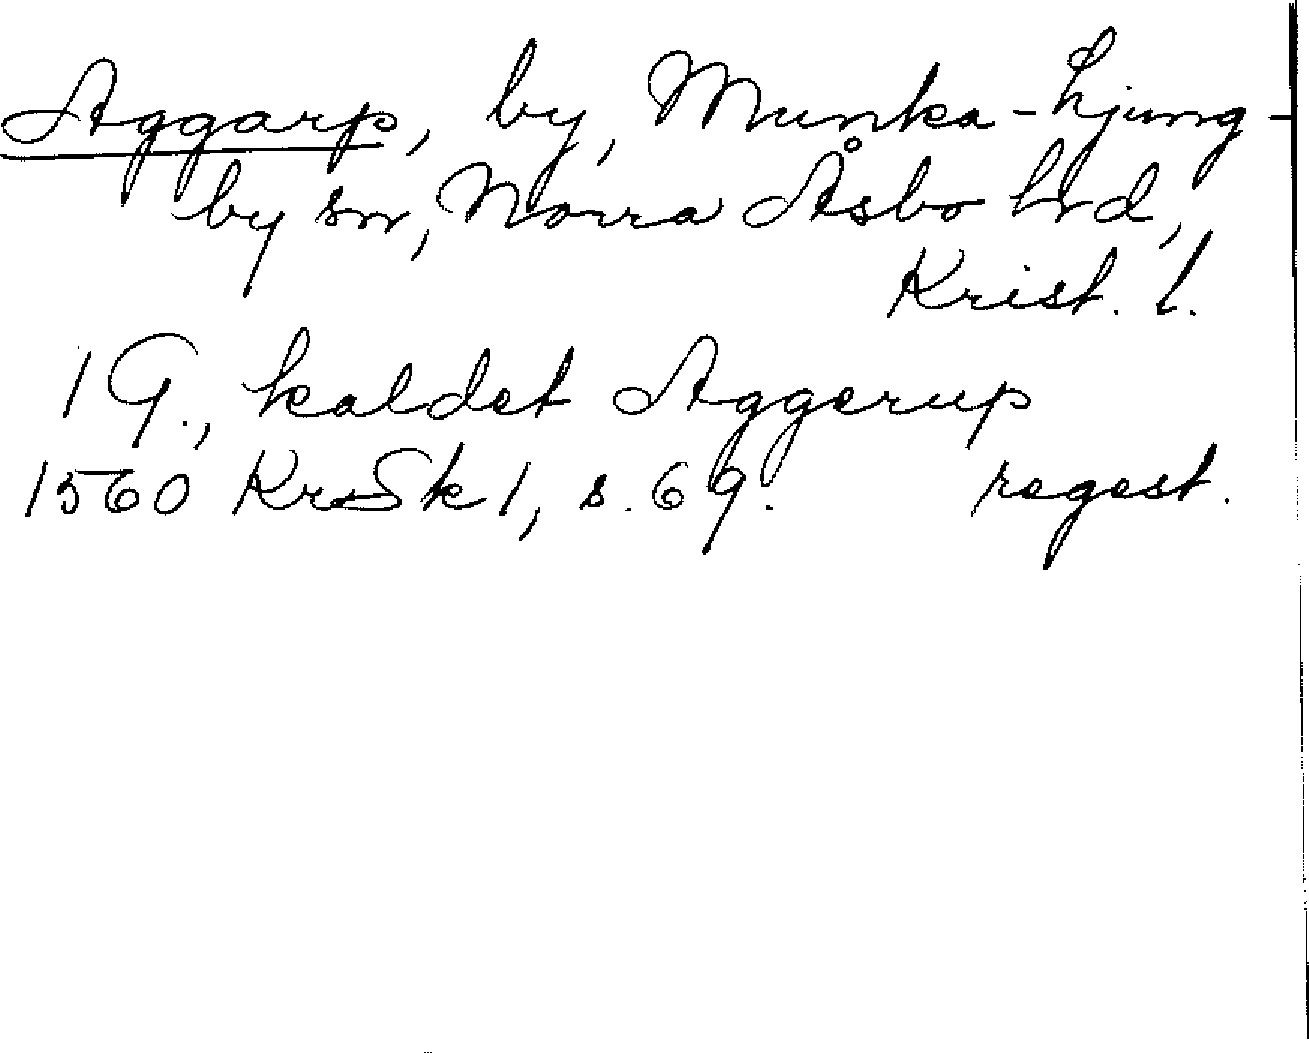 Aggarp, by, Munka-Ljung-
by sn, Norra Åsbo hd,
Krist. l.
1 G., kaldet Aggerup
1560 KrSk 1, s. 69. regest.